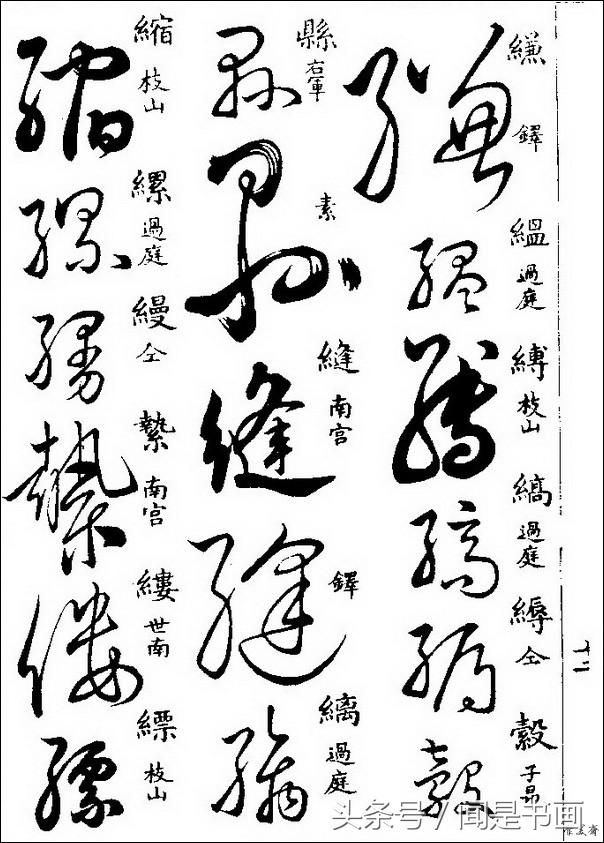 縑 鐸
縕 過庭
縛 枝山
縞 過庭
縟 仝
縠 子昂
縣 右軍
素
縫 南宮
鐸
縭 過庭
縮 枝山
縲 過庭
縵 仝
縶 南宮
縷 世南
縹 枝山
头条号/闻是书画